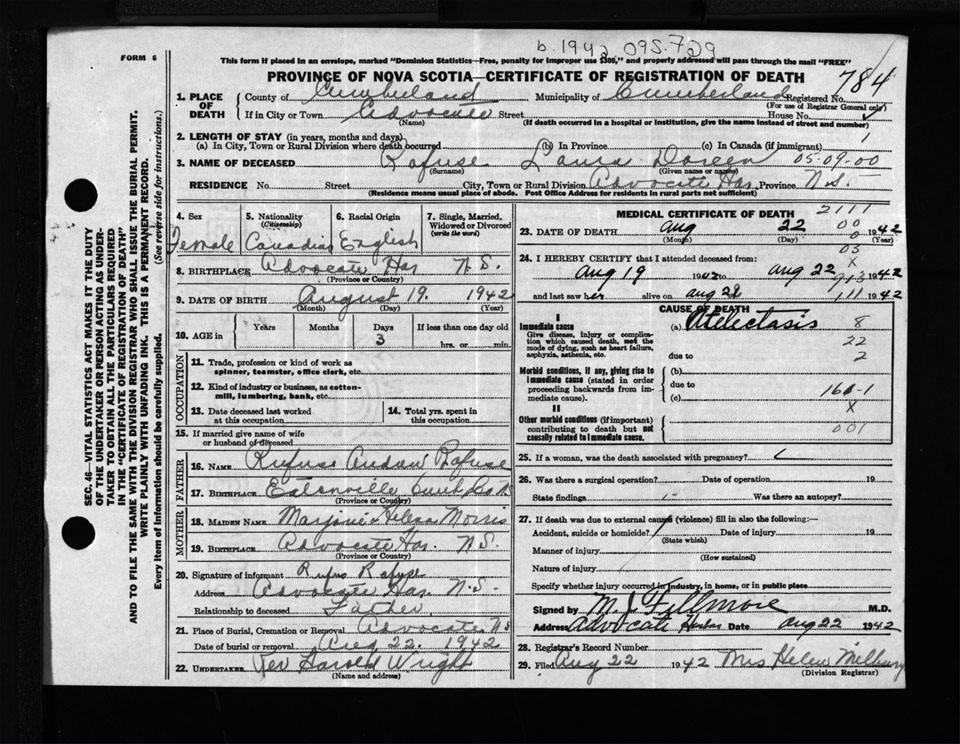 b. 1942 095.729
FORM 6
This form if placed in an envelope, marked "Dominion Statistics—Free, penalty for improper use $300," and properly addressed will pass through the mail "FREE"
PROVINCE OF NOVA SCOTIA—CERTIFICATE OF REGISTRATION OF DEATH
784
1. PLACE OF DEATH County of Cumberland Municipality of Cumberland Registered No.
(For use of Registrar General only)
If in City or Town Advocate Street House No.
(Name) (If death occurred in a hospital or institution, give the name instead of street and number)
2. LENGTH OF STAY (in years, months and days)
(a) In City, Town or Rural Division where death occurred (b) In Province (c) In Canada (if immigrant)
3. NAME OF DECEASED Rafuse Laura Doreen 05-09-00
(Surname) (Given name or names)
RESIDENCE No. Street City, Town or Rural Division Advocate Har. Province N.S.
(Residence means usual place of abode. Post Office Address for residents in rural parts not sufficient)
SEC. 46—VITAL STATISTICS ACT MAKES IT THE DUTY
OF THE UNDERTAKER OR PERSON ACTING AS UNDER-
TAKER TO OBTAIN ALL THE PARTICULARS REQUIRED
IN THE "CERTIFICATE OF REGISTRATION OF DEATH"
AND TO FILE THE SAME WITH THE DIVISION REGISTRAR WHO SHALL ISSUE THE BURIAL PERMIT.
WRITE PLAINLY WITH UNFADING INK. THIS IS A PERMANENT RECORD.
Every item of information should be carefully supplied. (See reverse side for instructions.)
4. Sex 5. Nationality (Citizenship) 6. Racial Origin 7. Single, Married, Widowed or Divorced (write the word)
Female Canadian English
8. BIRTHPLACE Advocate Har N.S.
(Province or Country)
9. DATE OF BIRTH August 19. 1942
(Month) (Day) (Year)
10. AGE in Years Months Days If less than one day old
3 hrs. or min.
OCCUPATION
11. Trade, profession or kind of work as
spinner, teamster, office clerk, etc.
12. Kind of industry or business, as cotton-
mill, lumbering, bank, etc.
13. Date deceased last worked
at this occupation
14. Total yrs. spent in
this occupation
15. If married give name of wife
or husband of deceased
FATHER
16. NAME Rufus Andrew Rafuse
17. BIRTHPLACE Eatonville Cumb Co N
(Province or Country)
MOTHER
18. MAIDEN NAME Marjorie Helena Morris
19. BIRTHPLACE Advocate Har. N.S.
(Province or Country)
20. Signature of informant Rufus Rafuse
Address Advocate Har. N.S.
Relationship to deceased Father.
21. Place of Burial, Cremation or Removal Advocate N.S
Date of burial or removal Aug 22. 1942
22. UNDERTAKER Rev Harold Wright
(Name and address)
MEDICAL CERTIFICATE OF DEATH 2111
23. DATE OF DEATH Aug 22 1942
(Month) (Day) (Year)
00
0
03
X
24. I HEREBY CERTIFY that I attended deceased from:
Aug 19 1942 to Aug 22 1942
913
and last saw her alive on Aug 22 1942
111
CAUSE OF DEATH
I
Immediate cause (a) Atelectasis 8
Give disease, injury or complica-
tion which caused death, not the
mode of dying, such as heart failure,
asphyxia, asthenia, etc.
22
due to 2
Morbid conditions, if any, giving rise to
immediate cause (stated in order
proceeding backwards from im-
mediate cause).
(b)
due to
(c) 161-1
X
II
Other morbid conditions (if important)
contributing to death but not
causally related to immediate cause.
001
25. If a woman, was the death associated with pregnancy?
26. Was there a surgical operation? Date of operation 19
State findings Was there an autopsy?
27. If death was due to external causes (violence) fill in also the following:—
Accident, suicide or homicide? Date of injury 19
(State which)
Manner of injury
(How sustained)
Nature of injury
Specify whether injury occurred in industry, in home, or in public place
Signed by M. J. Fillmore M.D.
Address Advocate Date Aug 22 1942
28. Registrar's Record Number
29. Filed Aug 22 1942 Mrs Helen Milbury
(Division Registrar)